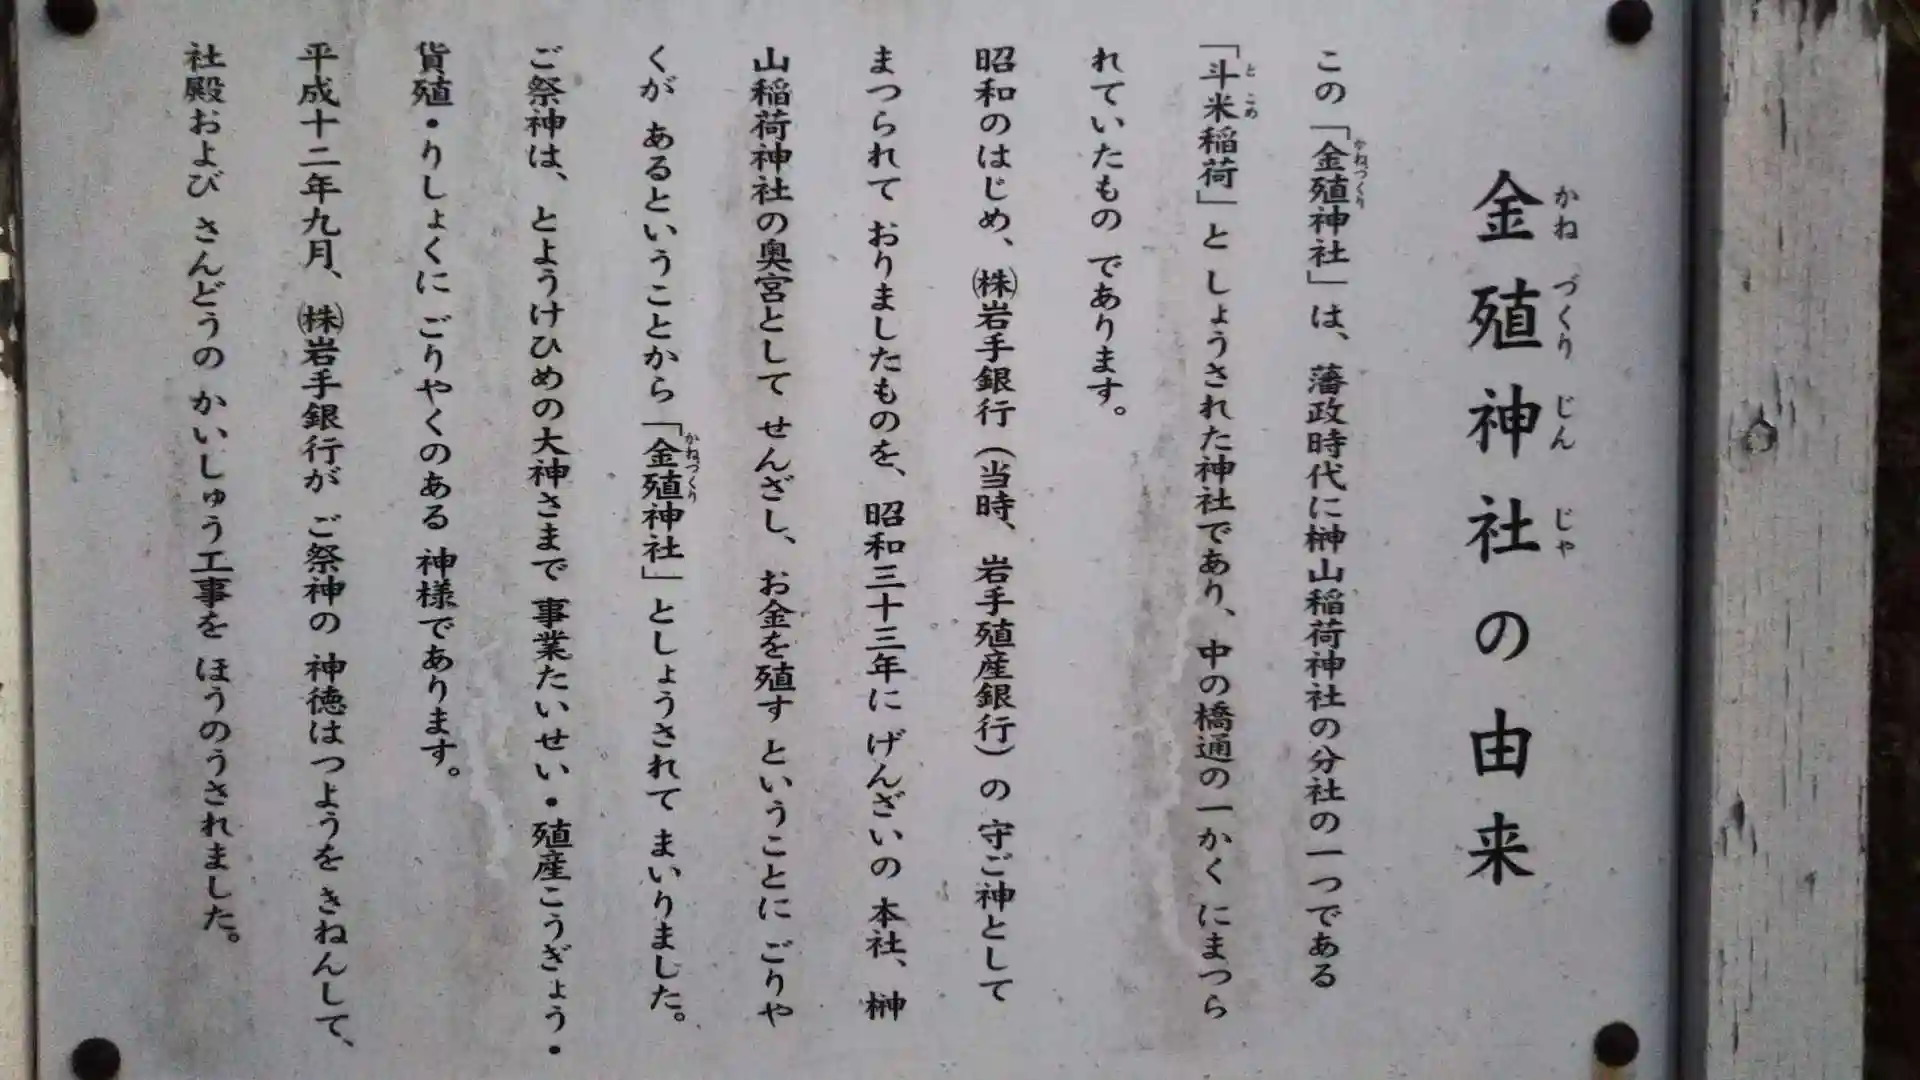 金殖神社の由来
この「金殖神社」は、藩政時代に榊山稲荷神社の分社の一つである
「斗米稲荷」と しょうされた神社であり、中の橋通の一かく にまつら
れていたもの であります。
昭和のはじめ、㈱岩手銀行（当時、岩手殖産銀行）の 守ご神として
まつられて おりましたものを、昭和三十三年に げんざいの 本社、榊
山稲荷神社の奥宮として せんざし、お金を殖す ということに ごりや
くが あるということから「金殖神社」としょうされて まいりました。
ご祭神は、とようけひめの大神さまで 事業たいせい・殖産こうぎょう・
貨殖・りしょくに ごりやくのある 神様であります。
平成十二年九月、㈱岩手銀行が ご祭神の 神徳はつようを きねんして、
社殿および さんどうの かいしゅう工事を ほうのうされました。